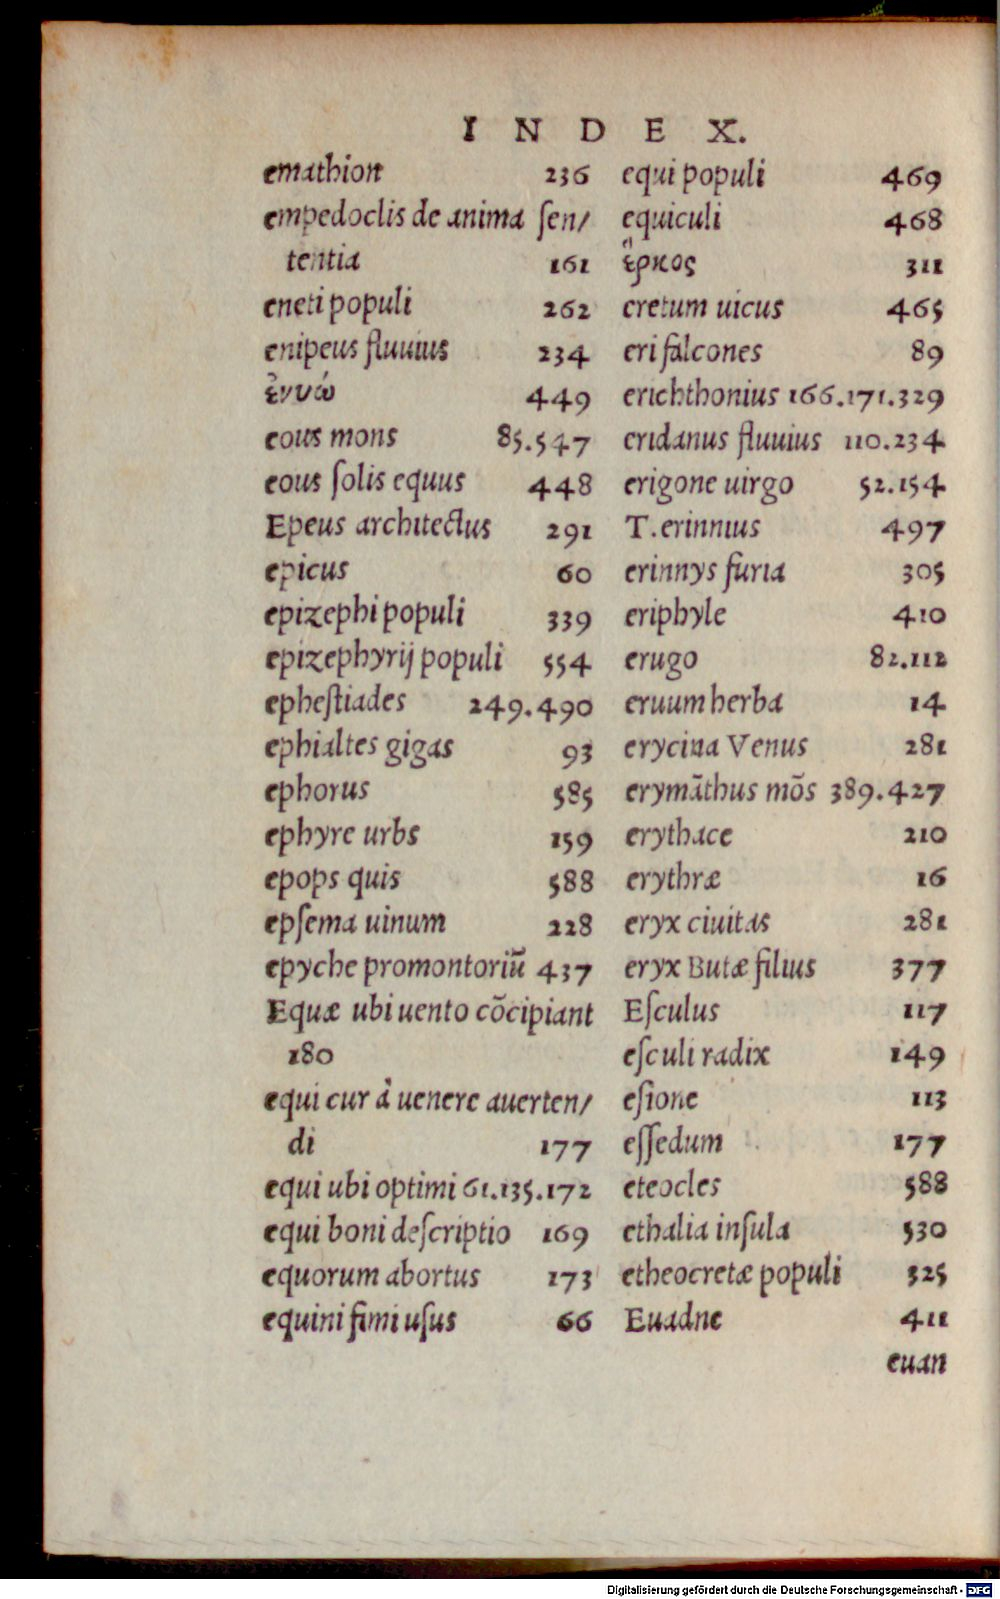 INDEX.
emathion 236
empedoclis de anima ſen/
tentia 161
eneti populi 262
enipeus fluuius 234
ἐνυώ 449
eous mons 85.547
eous ſolis equus 448
Epeus architectus 291
epicus 60
epizephi populi 339
epizephyrij populi 554
epheſtiades 249.490
ephialtes gigas 93
ephorus 585
ephyre urbs 159
epops quis 588
epſema uinum 228
epyche promontoriũ 437
Equæ ubi uento cõcipiant
180
equi cur à uenere auerten/
di 177
equi ubi optimi 61.135.172
equi boni deſcriptio 169
equorum abortus 173
equini fimi uſus 66
equi populi 469
equiculi 468
ἕρκος 311
cretum uicus 465
eri falcones 89
erichthonius 166.171.329
eridanus fluuius 110.234
erigone uirgo 52.154
T.erinnius 497
erinnys furia 305
eriphyle 410
erugo 82.112
eruum herba 14
erycina Venus 281
erymãthus mõs 389.427
erythace 210
erythræ 16
eryx ciuitas 281
eryx Butæ filius 377
Eſculus 117
eſculi radix 149
eſione 113
eſſedum 177
eteocles 588
ethalia inſula 530
etheocretæ populi 325
Euadne 411
euan
Digitalisierung gefördert durch die Deutsche Forschungsgemeinschaft - DFG